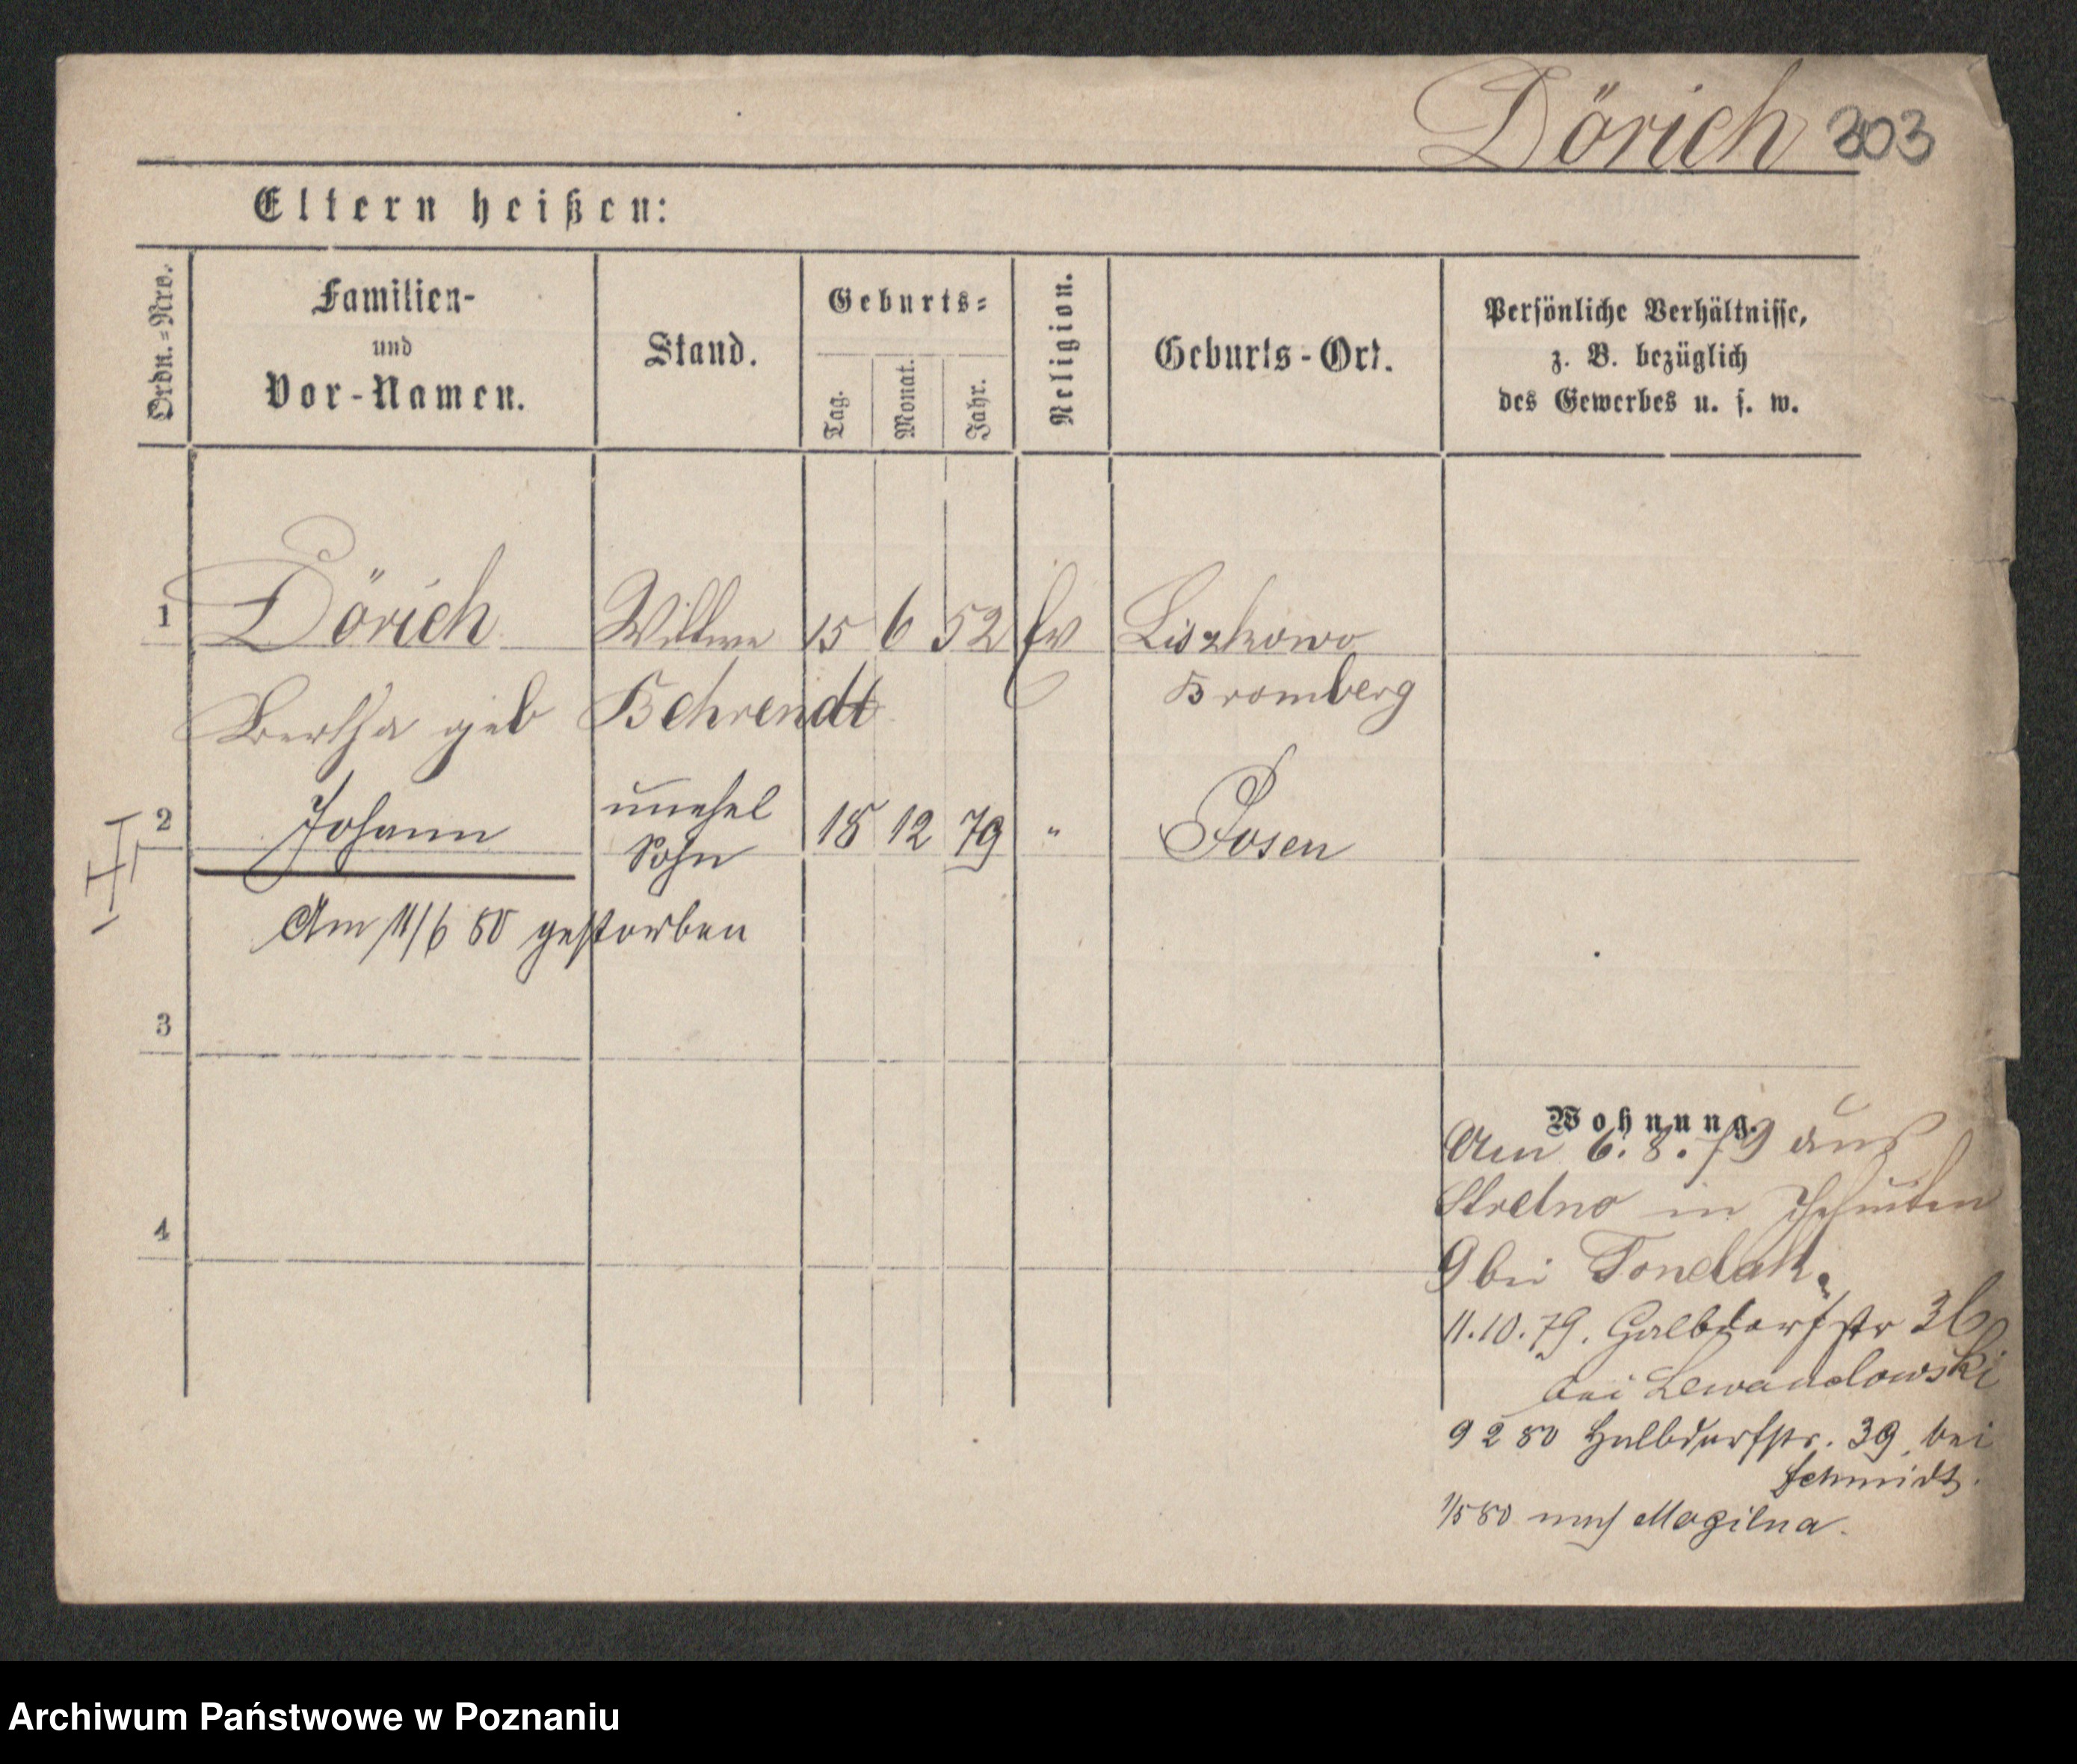 Dörich 303
Eltern heißen:
Ordn.=Nro.
Familien-
und
Vor-Namen.
Stand.
Geburts=
Tag.
Monat.
Jahr.
Religion.
Geburts-Ort.
Persönliche Verhältnisse,
z. B. bezüglich
des Gewerbes u. s. w.
1 Dörich Wittwe 15 6 52 Ev Liszkowo
Bertha geb Behrendt Bromberg
2 Johann unehel Sohn 18 12 79 " Posen
Am 11/6 80 gestorben
3
4
Wohnung.
Am 6.8.79 aus
Strelno in Jesuiten
9 bei
11.10.79. Halbdorfstr 36
bei Lewandowski
9 2 80 Halbdorfstr. 39 bei
Schmidt.
1/5 80 nach Mogilna.
Archiwum Państwowe w Poznaniu